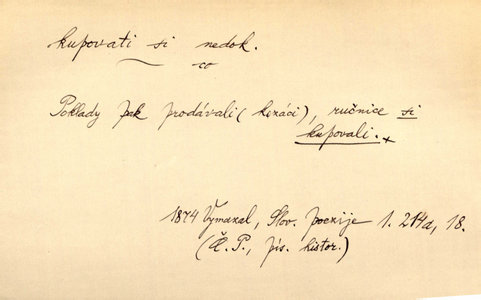 kupovati si nedok.
co
Poklady pak prodávali (kozáci), ručnice si
kupovali. x
1874 Vymazal, Slov. poezije 1. 214a, 18.
(Č. P., pís. histor.)